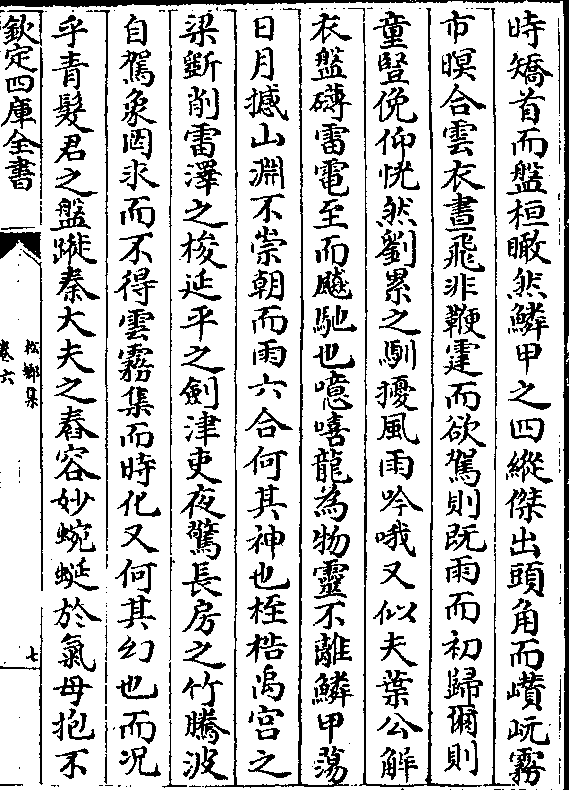 時矯首而盤桓瞰然鱗甲之四縱傑出頭角而巑岏霧
市暝合雲衣晝飛非鞭霆而欲駕則既雨而初歸爾則
童豎俛仰恍然劉累之馴擾風雨吟哦又似夫葉公解
衣盤礴雷電至而颷馳也噫嘻龍為物靈不離鱗甲蕩
日月撼山淵不崇朝而雨六合何其神也桎梏禹宮之
梁斷削雷澤之梭延平之劍津吏夜驚長房之竹騰波
自駕象罔求而不得雲霧集而時化又何其幻也而况
乎青髮君之盤蹤秦大夫之舂容妙蜿蜒於氣母抱不
欽定四庫全書
松鄉集
卷六
七